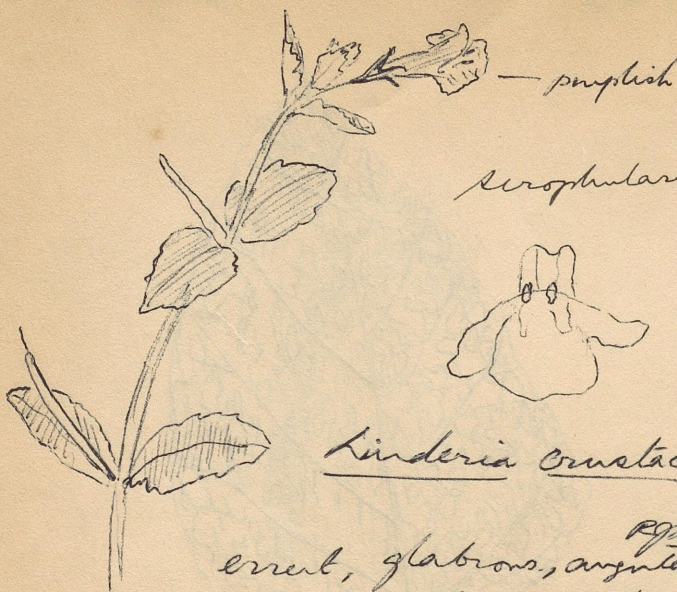 — purplish
Scrophular
Linderia crustac
errect, glabrous, angule